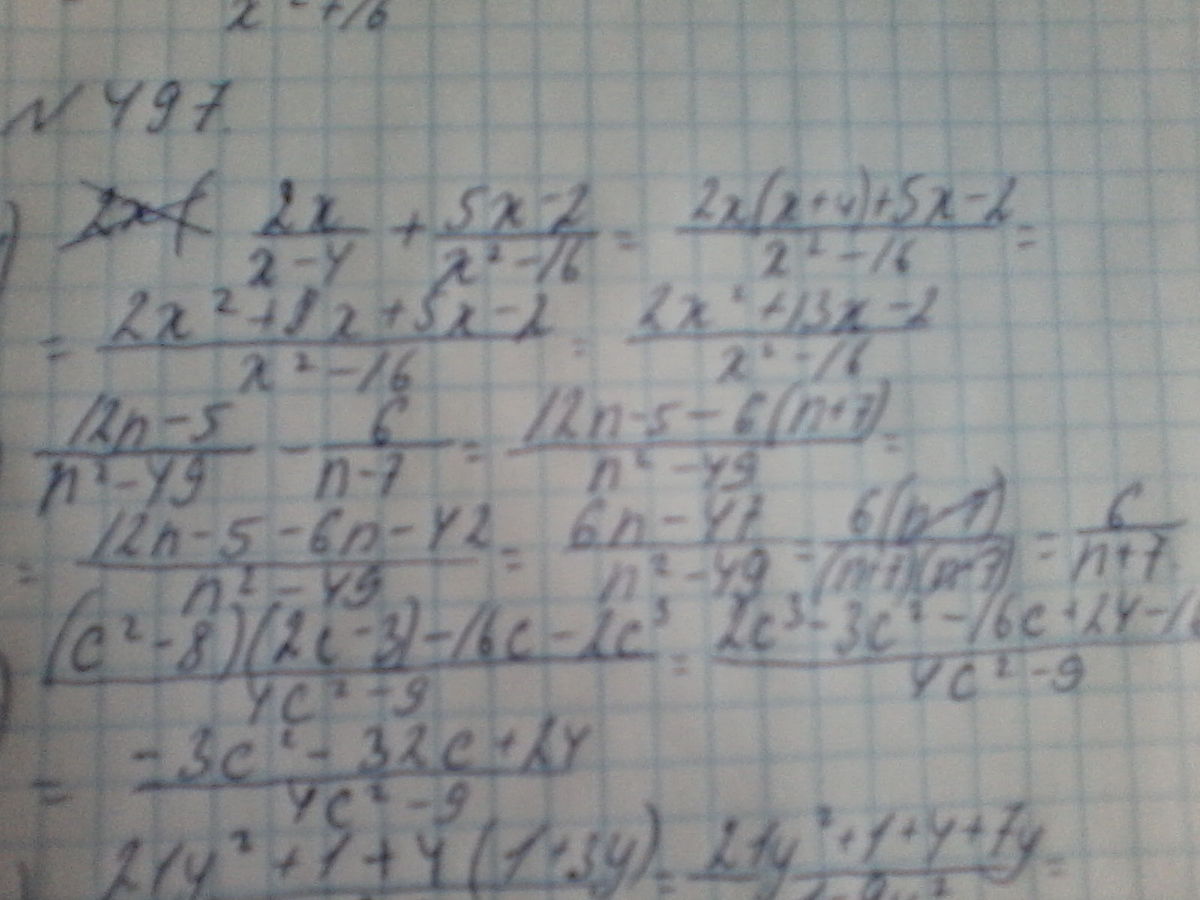 x² + 16
N 497
2x/(x-4) + (5x-2)/(x²-16) = (2x(x+4)+5x-2)/(x²-16) =
= (2x²+8x+5x-2)/(x²-16) = (2x²+13x-2)/(x²-16)
(12n-5)/(n²-49) - 6/(n-7) = (12n-5-6(n+7))/(n²-49) =
= (12n-5-6n-42)/(n²-49) = (6n-47)/(n²-49) = 6(n-7)/((n+7)(n-7)) = 6/(n+7)
((c²-8)(2c-3)-16c-2c³)/(4c²-9) = (2c³-3c²-16c+24-16)/(4c²-9)
= (-3c²-32c+24)/(4c²-9)
21y²+1+4(1+3y) = 21y²+1+4+7y =